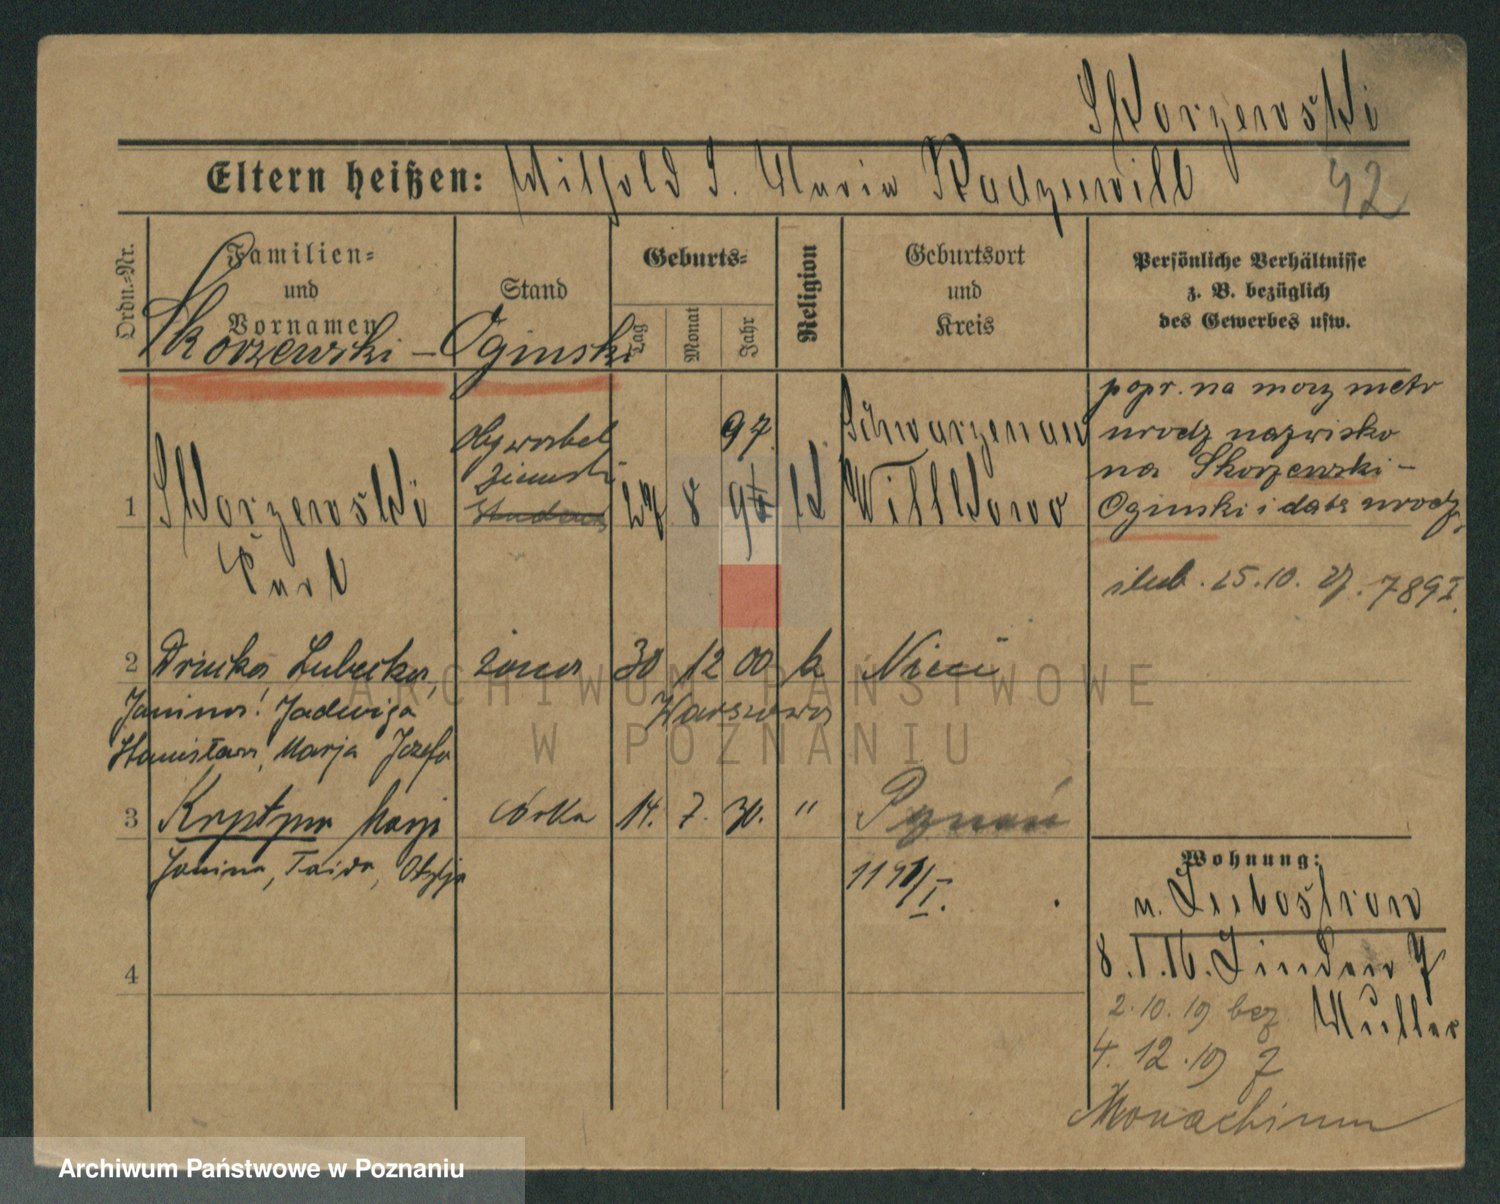 Skorzewski
Eltern heißen: Withold S. Maria Radziwill
42
Ordn.-Nr.
Familien-
und
Vornamen
Stand
Geburts-
Tag
Monat
Jahr
Religion
Geburtsort
und
Kreis
Persönliche Verhältnisse
z. B. bezüglich
des Gewerbes usw.
Skorzewski – Oginski
popr. na mocy metr
urodz nazwisko
na Skorzewski –
Oginski i data urodz.
97
Obywatel
ziemski
1 Skorzewski
Karl
Student
27 8 k
Schwarzenau
Witkowo
ślub. 25.10.27. 789 I.
2 Drucka Lubecka, żona 30 12 00 k Nicei
Janina! Jadwiga Warszawa
Stanisława, Marja Józefa
3 Krystyna Marja córka 14. 7. 30. " Poznań
Janina, Taida, Otylja
119 /I.
4
Wohnung:
n. Lubostron
8.1.16. Linden 7
Muller
2.10.19 bez
4.12.19 z
Monachium
ARCHIWUM PAŃSTWOWE
W POZNANIU
Archiwum Państwowe w Poznaniu